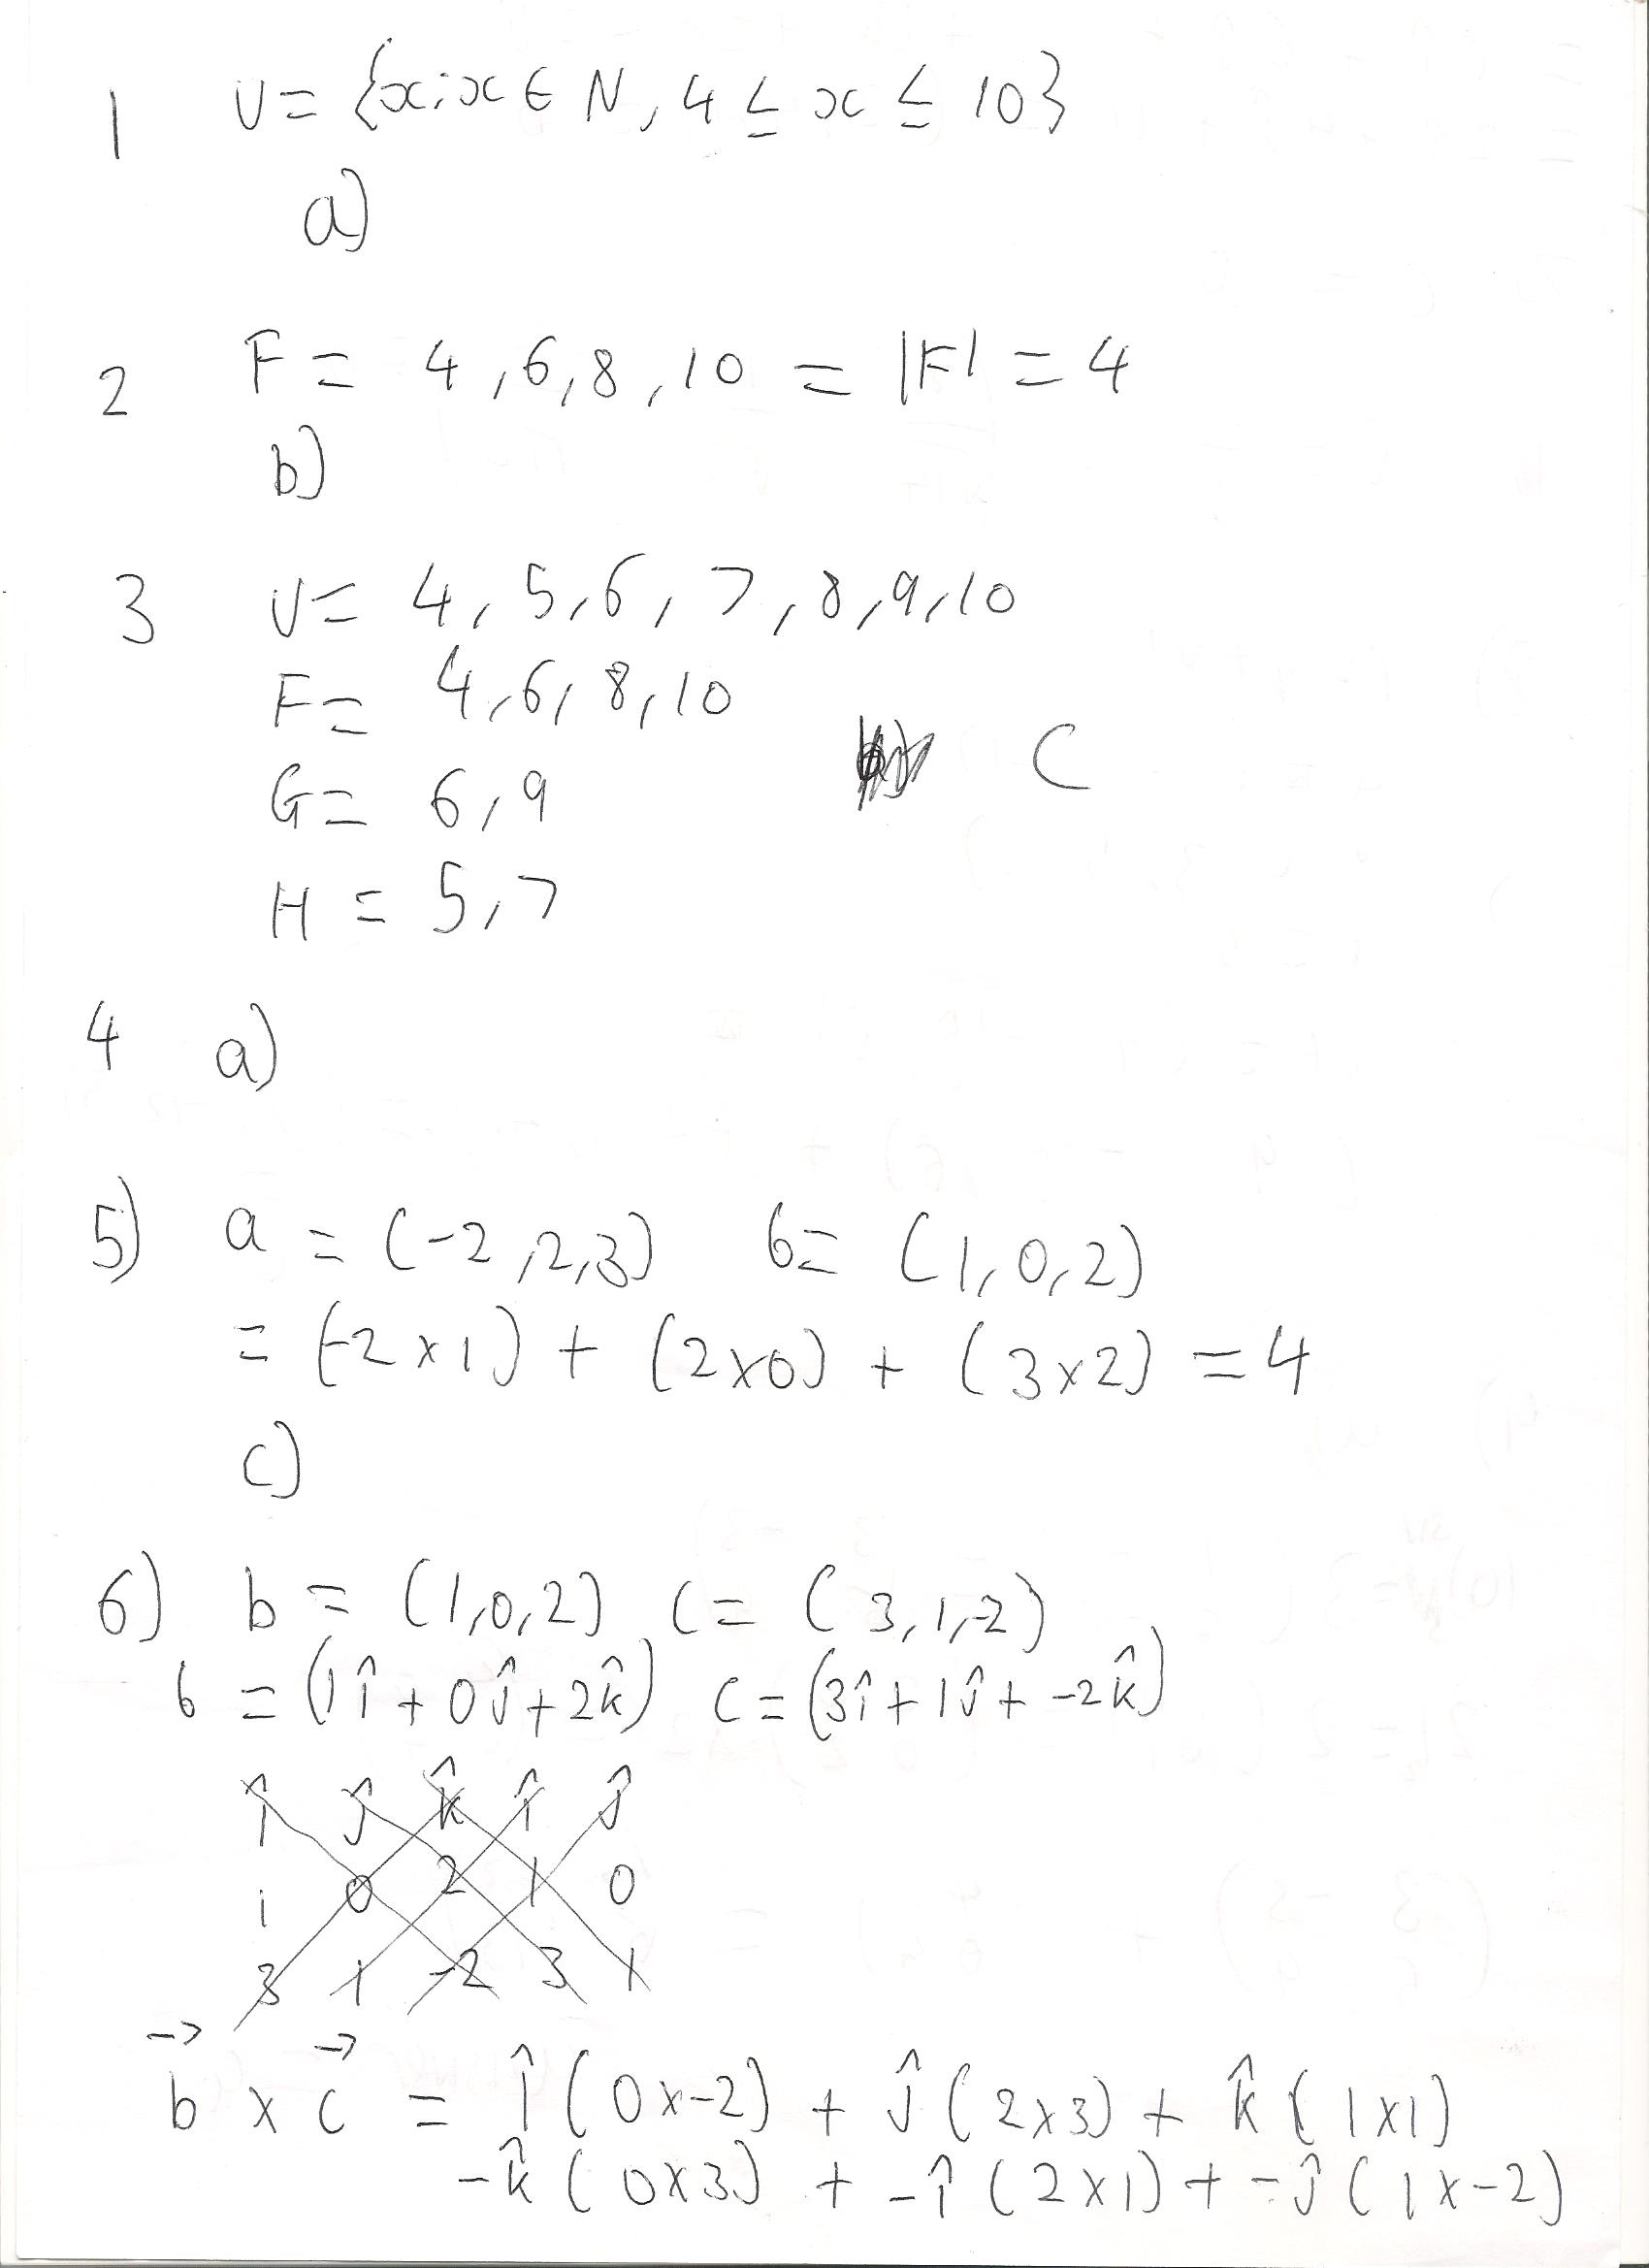 1 U = {x:x ∈ N, 4 ≤ x ≤ 10}
a)
2 F = 4,6,8,10 = |F| = 4
b)
3 U = 4,5,6,7,8,9,10
F = 4,6,8,10
C
G = 6,9
H = 5,7
4 a)
5) a = (-2,2,3) b = (1,0,2)
= (-2x1) + (2x0) + (3x2) = 4
c)
6) b = (1,0,2) c = (3,1,-2)
b = (1î + 0ĵ + 2k̂) c = (3î + 1ĵ + -2k̂)
î ĵ k̂ î ĵ
1 0 2 1 0
3 1 -2 3 1
b⃗ x c⃗ = î(0x-2) + ĵ(2x3) + k̂(1x1)
-k̂(0x3) + -î(2x1) + -ĵ(1x-2)